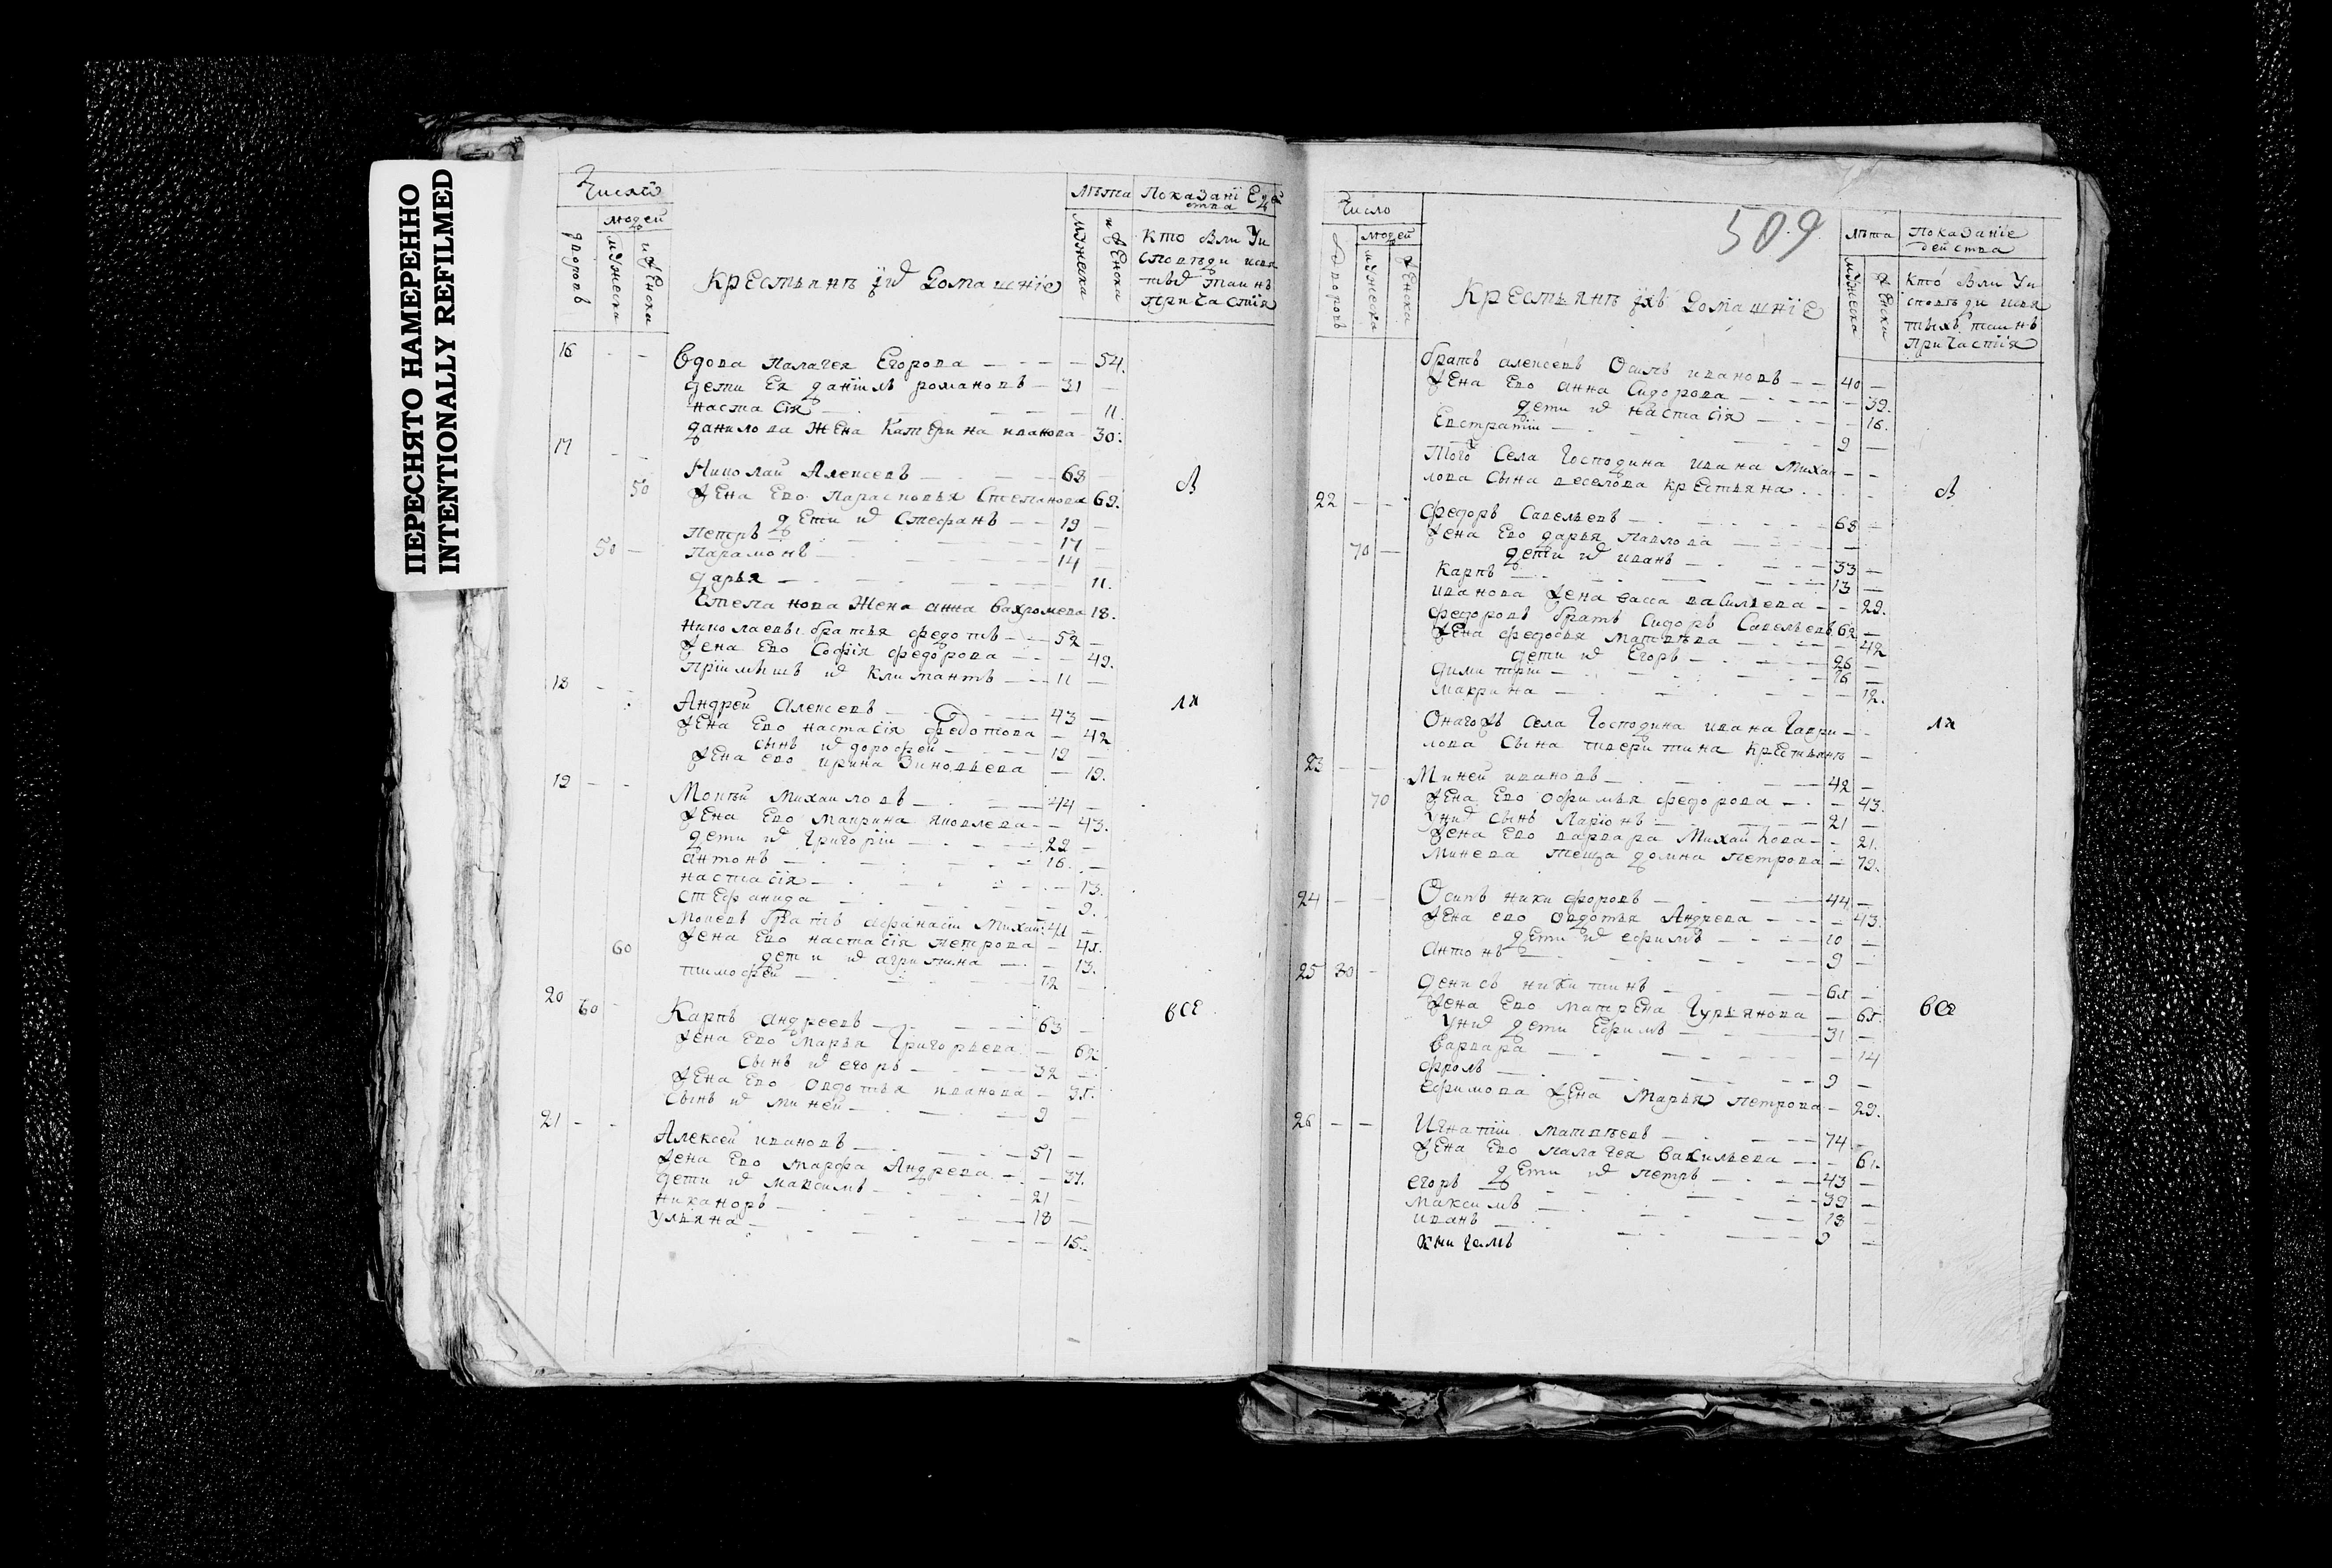 ПЕРЕСНЯТО НАМЕРЕННО
INTENTIONALLY REFILMED
Число
людей
дворовъ
мужеска
женска
Крестьянъ ихъ домашніе
лѣта
мужеска
женска
Показаніе дей
ства
Кто былъ у и
сповѣди исвя
тыхъ таинъ
причастія
16 - - Вдова Палагея Егорова - - 54.
дети Ея даніилъ романовъ - 31 -
настасія - - 11.
данилова Жена Катерина иванова 30.
17 - -
Николай Алексеевъ - 68 -
50 Жена Ево Парасковья Степанова 69.
дети ихъ Стефанъ - 19 -
Петръ - 17 -
50 - Парамонъ - 14 -
дарья - - 11.
Степанова Жена анна Вахромева 18.
Николаевы братья федотъ - 52 -
Жена Ево Софія федорова - - 49.
Пріимышъ ихъ Климантъ - 11 -
18 - -
Андрей Алексеевъ - 43 -
Жена Ево настасія Федотова - 42
сынъ ихъ дорофей - 19 -
Жена ево ирина Зиновьева - 19.
19 - -
Мокѣй Михаиловъ - 44 -
Жена Ево Маврина яковлева - 43.
дети ихъ Григоріи - 22 -
антонъ - 16. -
настасія - - 13.
стефанида - - 9.
Мокеевъ братъ афанасіи Михаи: 41 -
60 Жена Ево настасія петрова - 45.
дети ихъ агрипина - - 13.
тимофей - 12 -
20 60 -
Карпъ андреевъ - 63 -
Жена Ево Марья Григорьева - 62
сынъ ихъ егоръ - 32 -
Жена Ево Овдотья иванова - 35.
сынъ ихъ миней - 9 -
21 - -
Алексей ивановъ - 51 -
Жена Ево марфа Андрева - - 37.
дети ихъ максимъ - 21 -
Никаноръ - 18 -
Ульяна - - 15.
вся
509
Число
людей
дворовъ
мужеска
женска
Крестьянъ ихъ домашніе
лѣта
мужеска
женски
Показаніе
действа
Кто былъ у и
сповѣди исвя
тыхъ таинъ
причастія
братъ алексеевъ Осипъ ивановъ - - 40 -
Жена Ево анна Сидорова - - 39.
дети ихъ настасія - - 16.
Евстратіи - 9 -
Того Села Господина ивана Михаи - -
лова сына веселова крестьяна - -
22 - -
федоръ Савельевъ - 68 -
Жена Ево дарья Павлова -
70 - дети ихъ иванъ - 33 -
Карпъ - 13 -
иванова Жена васса васильева - - 29.
федоровъ братъ Сидоръ Савельевъ 62 -
Жена федосья матвѣева - - 42
дети ихъ Егоръ - 26 -
димитріи - 16 -
маврина - - 12.
Онагожъ села Господина ивана Гаври - -
лова сына тверитина Крестьянъ -
23 - -
Миней ивановъ - 42 -
70 Жена Ево офимья федорова - - 43.
Унихъ сынъ Ларіонъ - 21 -
Жена Ево варвара Михайлова - - 21.
Минева теща домна Петрова - 72.
24 - - Осипъ Никифоровъ - 44 -
Жена ево овдотья Андрева - - 43.
дети ихъ ефимъ - 10 -
антонъ - 9 -
25 30 -
денисъ никитинъ - 65 -
Жена Ево матрена Гурьянова - 65.
Унихъ дети Ефимъ - 31 -
варвара - - 14
фролъ - 9 -
ефимова Жена Марья петрова - 29.
26 - - Игнатіи матвѣевъ - 74 -
Жена Ево палагея васильева - - 61.
дети ихъ петръ - 43 -
егоръ - 39 -
максимъ - 18 -
иванъ - 9 -
книгамъ
вся